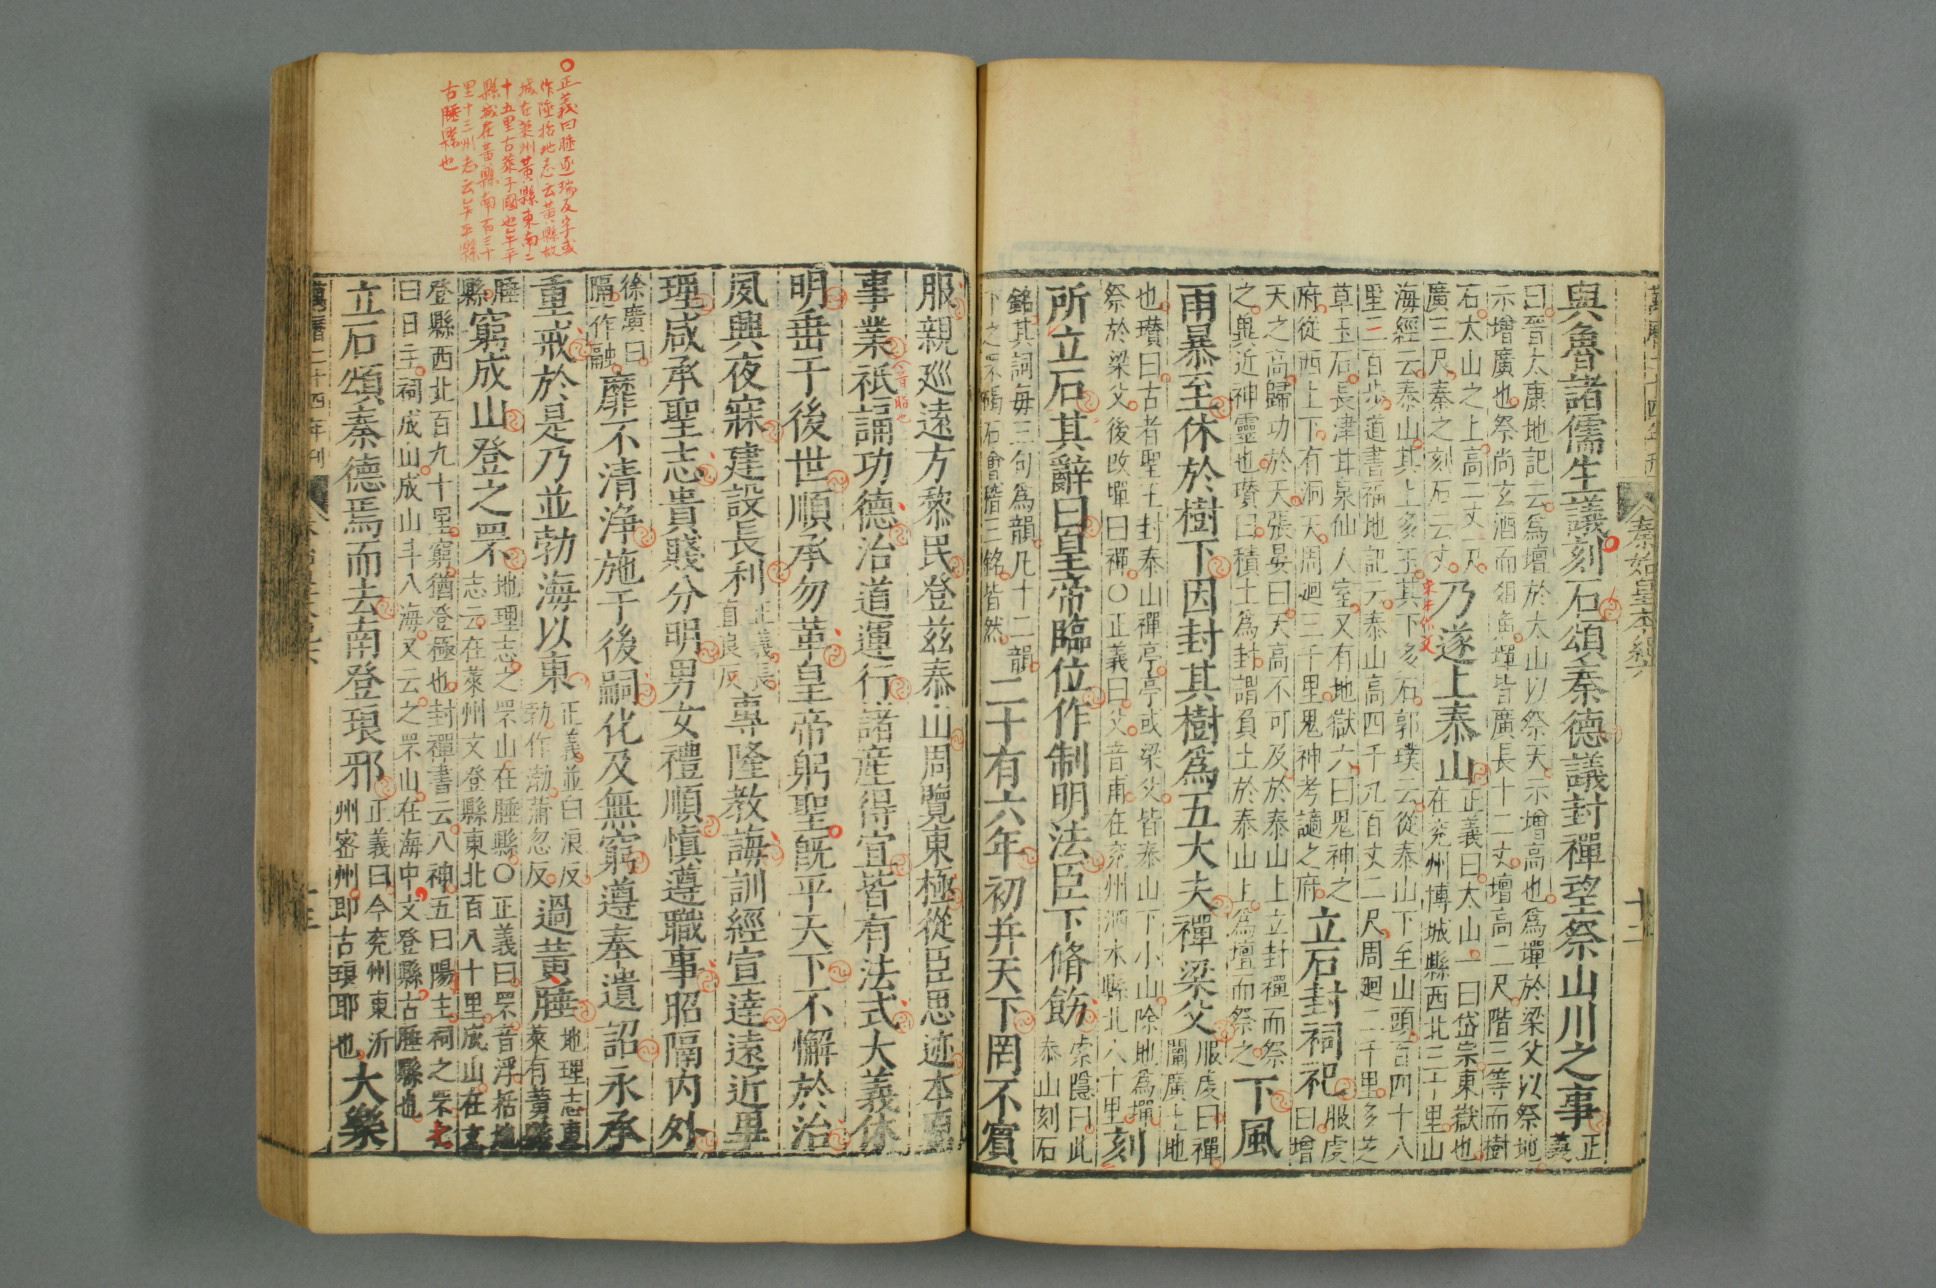 與魯諸儒生議刻石頌秦德議封禪望祭山川之事 正義
曰晉太康地記云爲壇於太山以祭天示增高也爲墠於梁父以祭地
示增廣也祭尚玄酒而俎魚墠皆廣長十二丈壇高二尺階三等而樹
石太山之上高三丈一尺
廣三尺秦之刻石云 乃遂上泰山 正義曰太山一曰岱宗東嶽也
在兖州博城縣西北三十里山
海經云泰山其上多玉其下多石郭璞云從泰山下至山頭百四十八
里三百步道書福地記云泰山高四千九百丈二尺周廻二千里多芝
草玉石長津甘泉仙人室又有地獄六曰鬼神之
府從西上下有洞天周廻三千里鬼神考讁之府 立石封祠祀 服虔
曰增
天之高歸功於天張晏曰天高不可及於泰山上立封禪而祭
之兾近神靈也瓚曰積土爲封謂負土於泰山上爲壇而祭之 下風
雨暴至休於樹下因封其樹爲五大夫禪梁父 服虔曰禪
闡廣土地
也瓚曰古者聖王封泰山禪亭亭或梁父皆泰山下小山除地爲墠
祭於梁父後改墠曰禪〇正義曰父音甫在兖州泗水縣北八十里 刻
所立石其辭曰皇帝臨位作制明法臣下脩飭 索隱曰此
泰山刻石
銘其詞每三句爲韻凡十二韻
下之罘碣石會稽三銘皆然 二十有六年初并天下罔不賓
服親巡遠方黎民登兹泰山周覽東極從臣思迹本原
事業祇誦功德治道運行諸産得宜皆有法式大義休
明垂于後世順承勿革皇帝躬聖既平天下不懈於治
夙興夜寐建設長利 正義長
直良反 專隆教誨訓經宣達遠近畢
理咸承聖志貴賤分明男女禮順慎遵職事昭隔内外
徐廣曰
隔一作融 靡不清浄施于後嗣化及無窮遵奉遺詔永承
重戒於是乃並勃海以東 正義並白浪反
勃作渤蒲忽反 過黃腄 地理志東
萊有黃縣
腄縣 窮成山登之罘 地理志之罘山在腄縣〇正義曰罘音浮括地
志云在萊州文登縣東北百八十里成山在文
登縣西北百九十里窮猶登極也封禪書云八神五曰陽主祠之罘
七曰日主祠成山成山斗入海又云之罘山在海中文登縣古腄縣也
立石頌秦德焉而去南登琅邪 正義曰今兖州東沂
州密州即古琅耶也 大樂
秦始皇本紀六
十二
萬曆二十四年刊
正義曰腄逐瑞反字或
作陲括地志云黃縣故
城在萊州黃縣東南二
十五里古萊子國也牟平
縣城在黃縣南百三十
里十三州志云牟平縣
古腄縣也